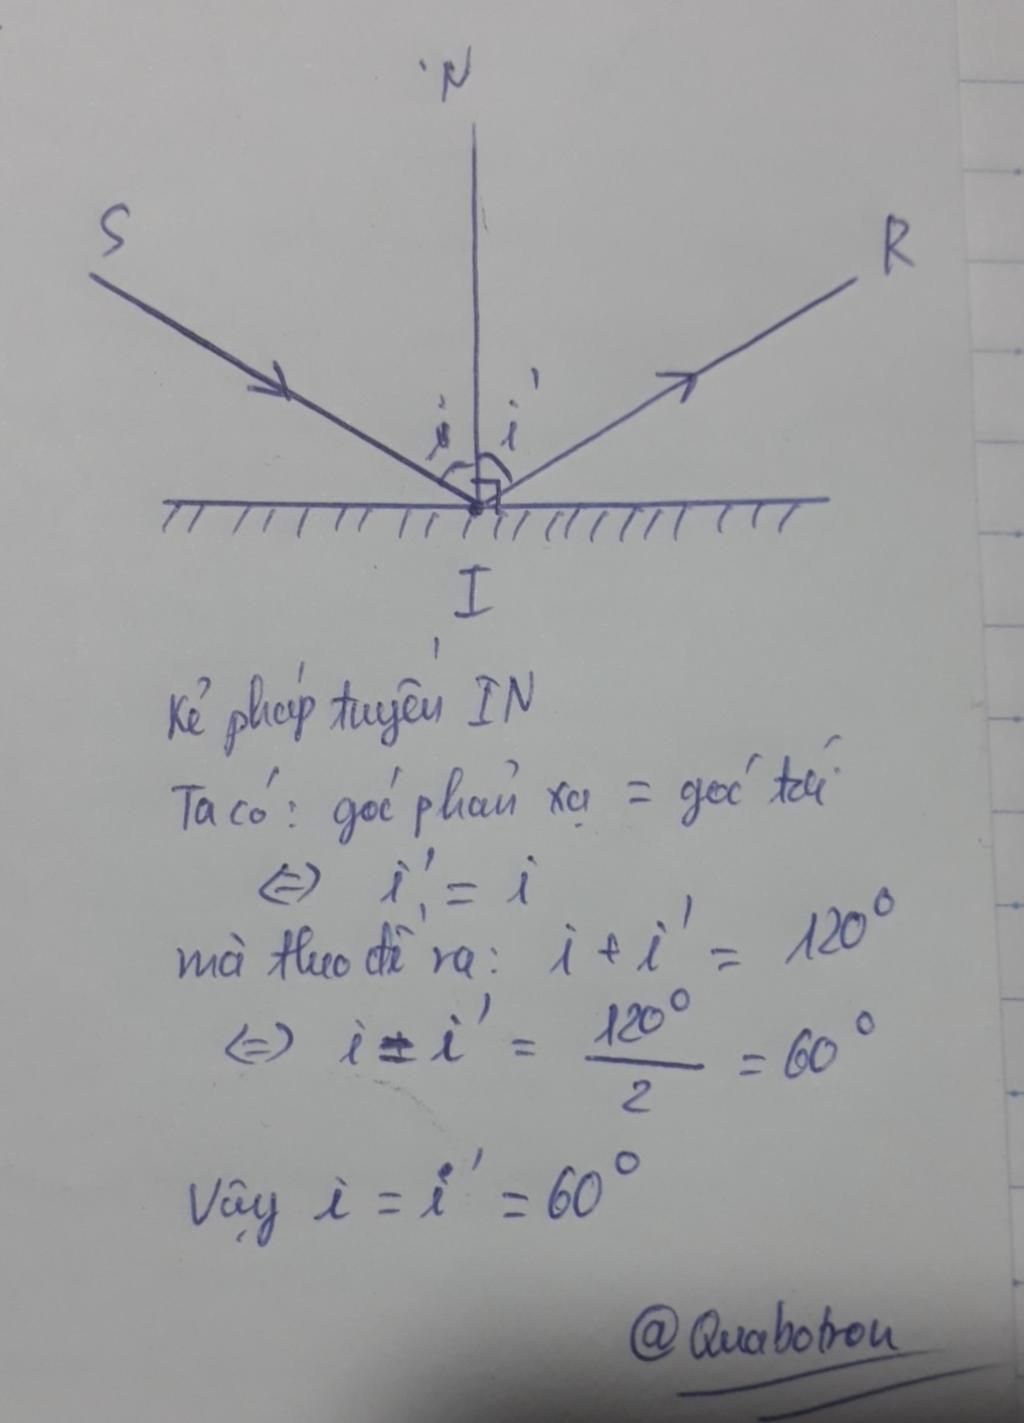 N
S
R
i
i'
I
Kẻ pháp tuyến IN
Ta có: góc phản xạ = góc tới
<=> i' = i
mà theo đề ra: i + i' = 120°
<=> i = i' = 120°/2 = 60°
Vậy i = i' = 60°
@Quabotrou